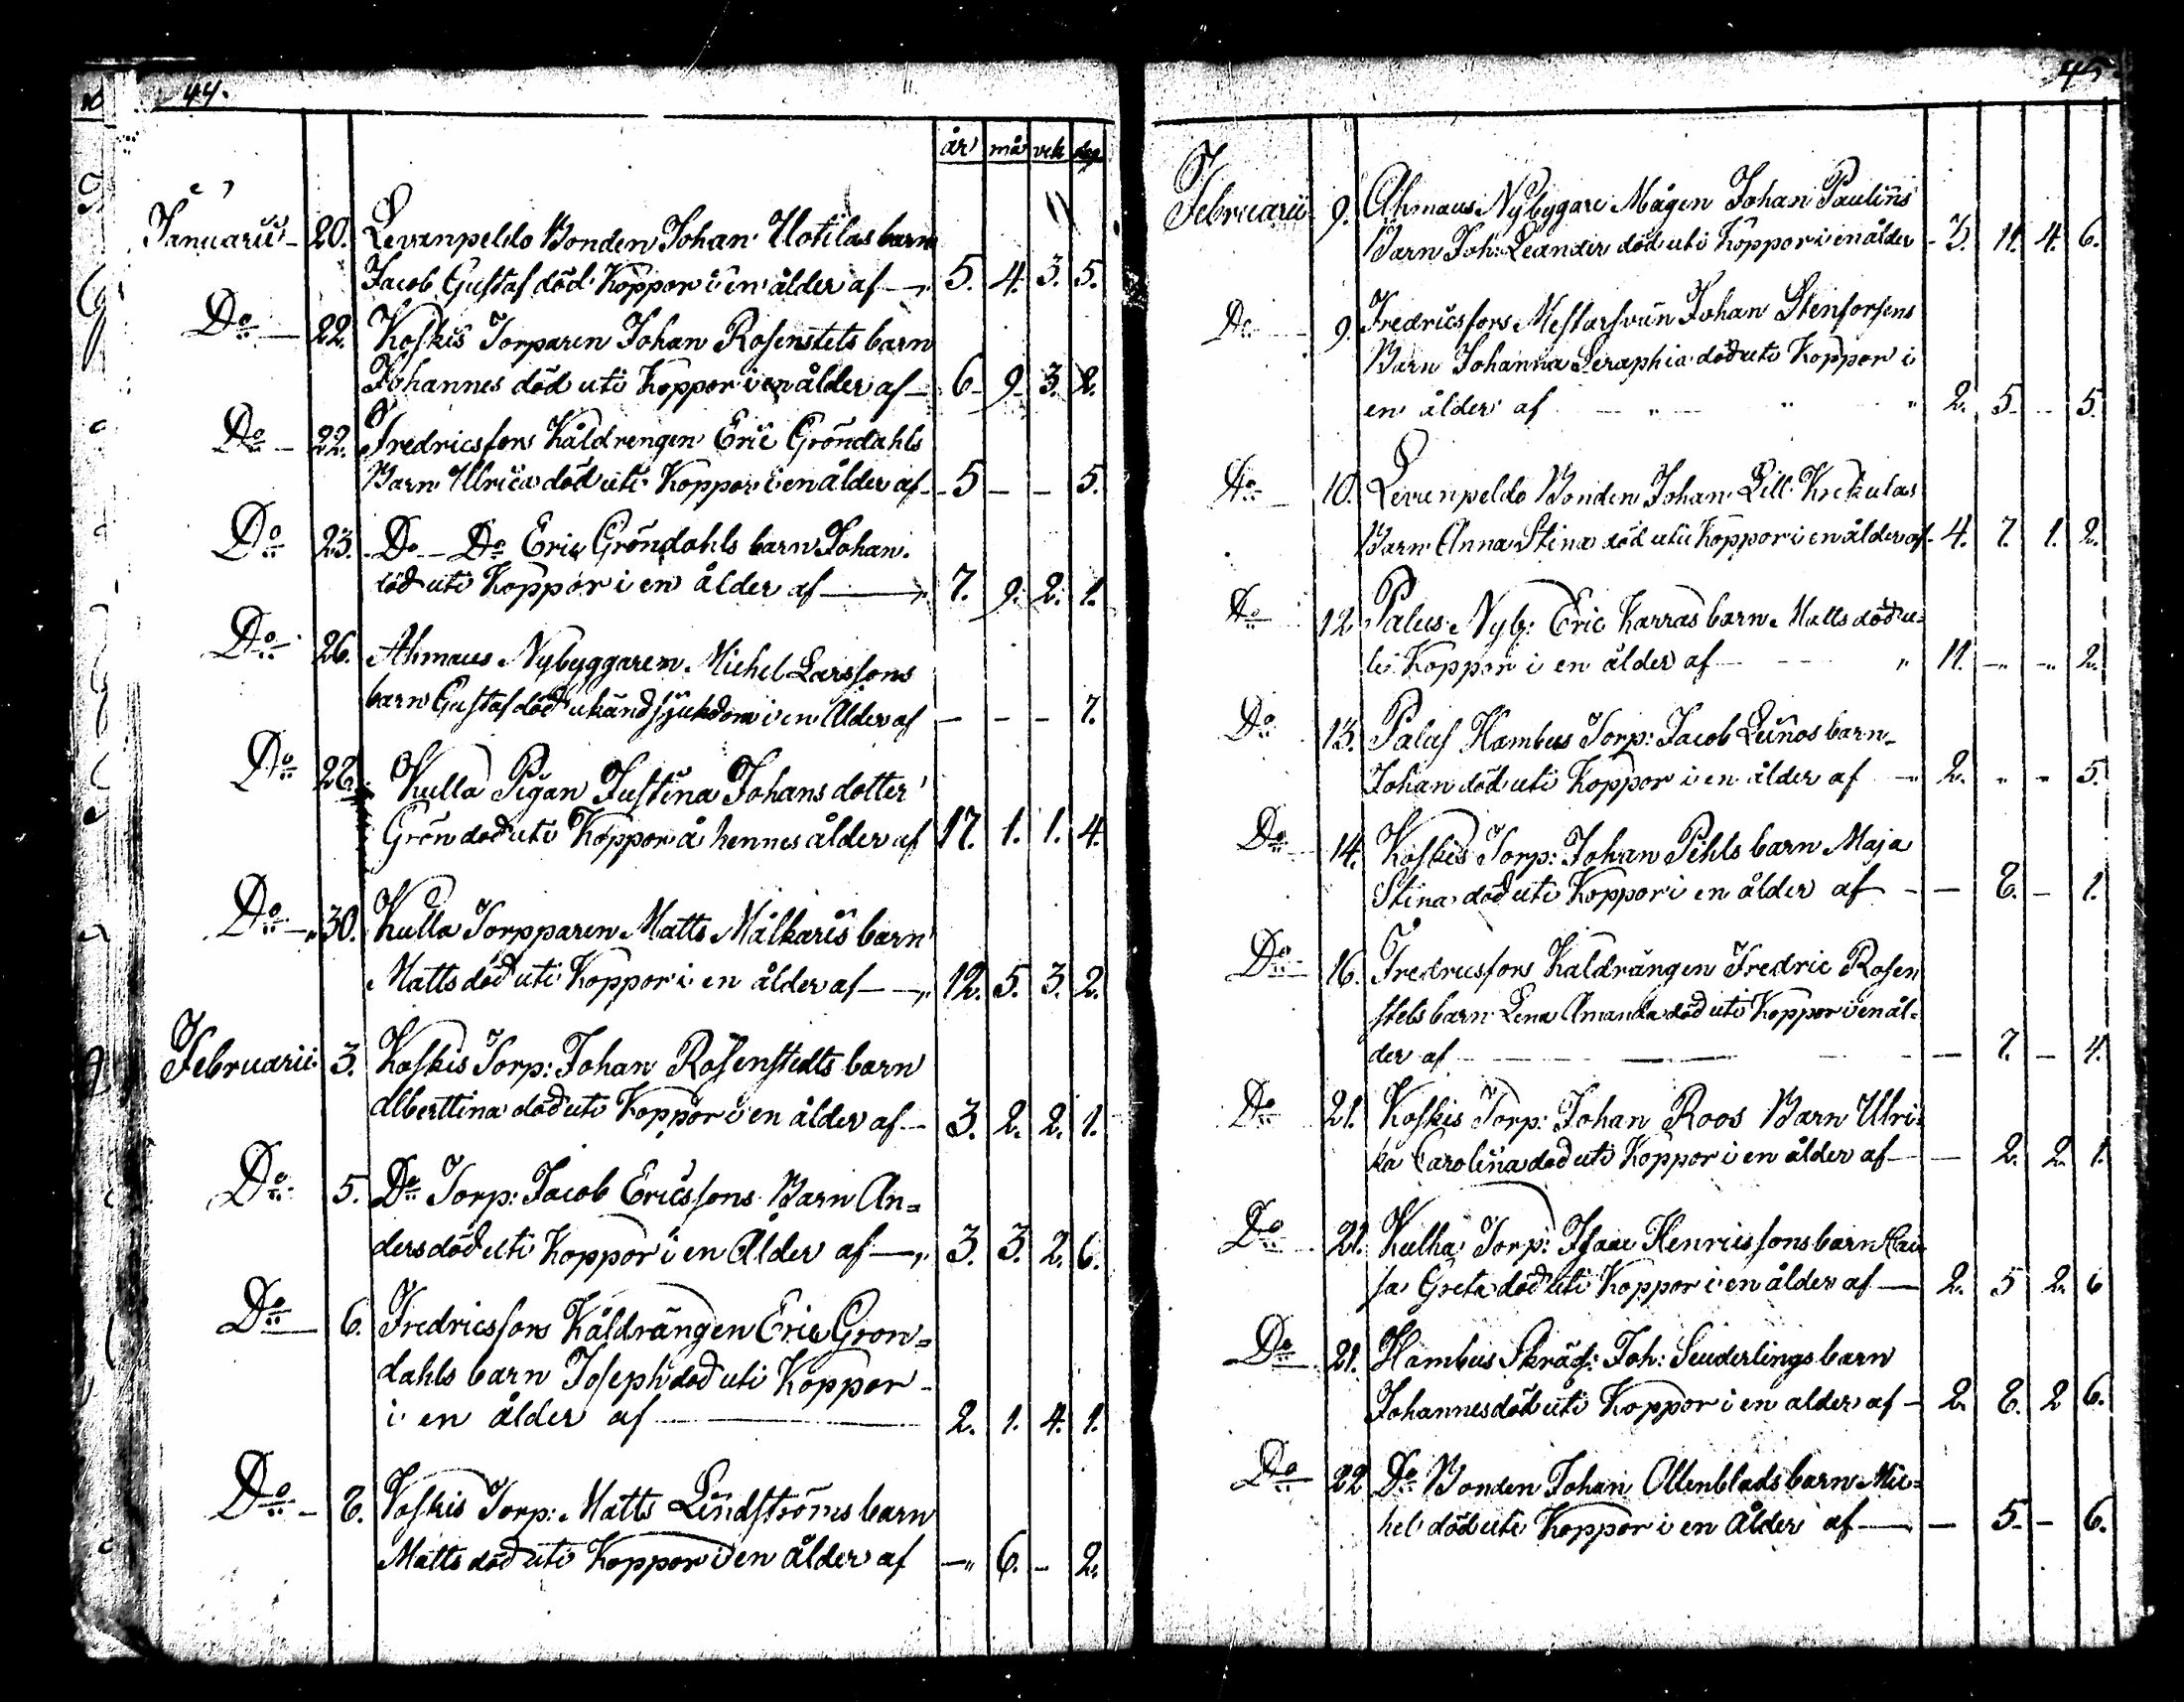 44.
år må vek dag
Januarii 20. Levanpeldo Bonden Johan Uotilas barn
Jacob Gustaf död Koppor i en ålder af 5. 4. 3. 5.
Do 22. Koskis Torparen Johan Rosenstets barn
Johannes död uti Koppor i en ålder af 6 9 3. 2.
Do 22. Fredricsfors Kåldrengen Eric Gröndahls
Barn Ulrica död uti Koppor i en ålder af 5 — — 5.
Do 23. Do Do Eric Gröndahls barn Johan
död uti Koppor i en ålder af 7. 9. 2. 1.
Do 26. Ahmaus Nybyggaren Michel Larssons
barn Gustaf död ukänd sjukdom i en Ålder af — — — 7.
Do 28. Kulla Pigan Justina Johans dotter
Grön död uti Koppor å hennes ålder af 17. 1. 1. 4.
Do 30. Kulla Torpparen Matts Målkaris barn
Matts död uti Koppor i en ålder af 12. 5. 3. 2.
Februarii 3. Koskis Torp: Johan Rosenstedts barn
Alberttina död uti Koppor i en ålder af 3. 2. 2. 1.
Do 5. Do Torp: Jacob Ericssons Barn An=
ders död uti Koppor i en Ålder af 3. 3. 2. 6.
Do 6. Fredricsfors Kåldrängen Eric Grön=
dahls barn Joseph död uti Koppor
i en ålder af 2. 1. 4. 1.
Do 8. Koskis Torp: Matts Lindströms barn
Matts död uti Koppor i en ålder af — 6. — 2.
45.
Februarii 9. Ahmaus Nybygare Mågen Johan Paulins
Barn Joh: Leander död uti Koppor i en ålder 3. 11. 4. 6.
Do 9. Fredricsfors Mestarsven Johan Stenforsens
Barn Johanna Seraphia död uti Koppor i
en ålder af 2. 5. — 5.
Do 10. Levenpeldo Bonden Johan Lill Krekulas
Barn Anna Stina död uti Koppor i en ålder af 4. 7. 1. 2.
Do 12. Palus Nyb: Eric Karras barn Matts död u=
ti Koppor i en ålder af 11. — — 2.
Do 13. Palus Hambus Torp: Jacob Leinos barn
Johan död uti Koppor i en ålder af 2. — — 5.
Do 14. Koskis Torp: Johan Pihls barn Maja
Stina död uti Koppor i en ålder af — 8. — 1.
Do 16. Fredricsfors Kåldrängen Fredric Rosen
stets barn Lena Amanda död uti Koppor i en ål=
der af — 7. — 4.
Do 21. Koskis Torp: Johan Roos Barn Ulri=
ka Carolina död uti Koppor i en ålder af — 2. 2. 1.
Do 21. Kulla Torp: Isaac Henricssons barn Cai
sa Greta död uti Koppor i en ålder af 2. 5 2. 6
Do 21. Hambus Skräd: Joh: Seuderlings barn
Johannes död uti Koppor i en alder af 2. 8. 2 6.
Do 22 Do Bonden Johan Ollenblads barn Mic=
hel död uti Koppor i en Ålder af — 5. — 6.